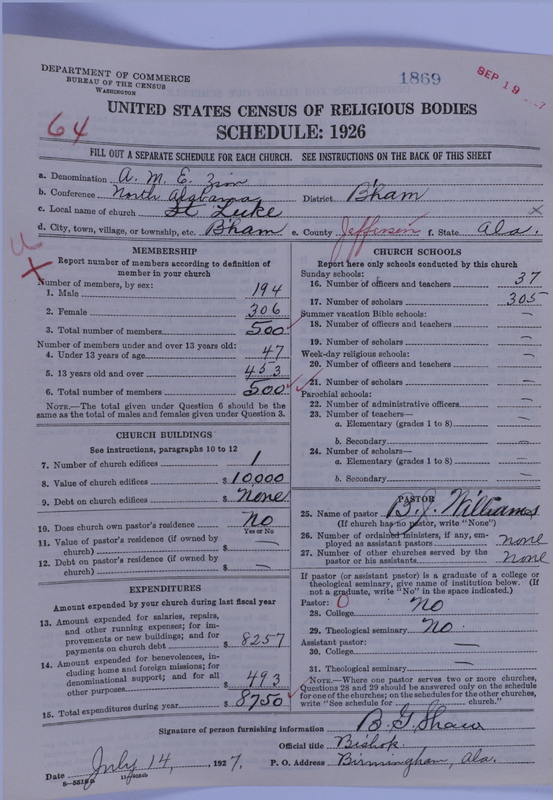 DEPARTMENT OF COMMERCE
BUREAU OF THE CENSUS
WASHINGTON
1869
SEP 19
64
UNITED STATES CENSUS OF RELIGIOUS BODIES
SCHEDULE: 1926
FILL OUT A SEPARATE SCHEDULE FOR EACH CHURCH. SEE INSTRUCTIONS ON THE BACK OF THIS SHEET
a. Denomination A. M. E. Zion
b. Conference North Alabama District B'ham
c. Local name of church St. Luke
d. City, town, village, or township, etc. B'ham e. County Jefferson f. State Ala.
MEMBERSHIP
Report number of members according to definition of
member in your church
Number of members, by sex:
1. Male 194
2. Female 306
3. Total number of members 500
Number of members under and over 13 years old:
4. Under 13 years of age 47
5. 13 years old and over 453
6. Total number of members 500
NOTE.—The total given under Question 6 should be
same as the total of males and females given under Question 3.
CHURCH BUILDINGS
See instructions, paragraphs 10 to 12
7. Number of church edifices 1
8. Value of church edifices $ 10,000
9. Debt on church edifices $ None
10. Does church own pastor's residence No
Yes or No
11. Value of pastor's residence (if owned by
church) $ —
12. Debt on pastor's residence (if owned by
church) $ —
EXPENDITURES
Amount expended by your church during last fiscal year
13. Amount expended for salaries, repairs,
and other running expenses; for im-
provements or new buildings; and for
payments on church debt $ 8257
14. Amount expended for benevolences, in-
cluding home and foreign missions; for
denominational support; and for all
other purposes $ 493
15. Total expenditures during year $ 8750
CHURCH SCHOOLS
Report here only schools conducted by this church
Sunday schools:
16. Number of officers and teachers 37
17. Number of scholars 305
Summer vacation Bible schools:
18. Number of officers and teachers —
19. Number of scholars —
Week-day religious schools:
20. Number of officers and teachers —
21. Number of scholars —
Parochial schools:
22. Number of administrative officers —
23. Number of teachers—
a. Elementary (grades 1 to 8) —
b. Secondary —
24. Number of scholars—
a. Elementary (grades 1 to 8) —
b. Secondary —
PASTOR
25. Name of pastor B. J. Williams
(If church has no pastor, write "None")
26. Number of ordained ministers, if any, em-
ployed as assistant pastors none
27. Number of other churches served by the
pastor or his assistants none
If pastor (or assistant pastor) is a graduate of a college or
theological seminary, give name of institution below. (If
not a graduate, write "No" in the space indicated.)
Pastor: 0
28. College No
29. Theological seminary No.
Assistant pastor:
30. College —
31. Theological seminary —
NOTE.—Where one pastor serves two or more churches,
Questions 28 and 29 should be answered only on the schedule
for one of the churches; on the schedules for the other churches,
write "See schedule for church."
Signature of person furnishing information B. G. Shaw
Official title Bishop.
Date July 14, 1927. P. O. Address Birmingham, Ala.